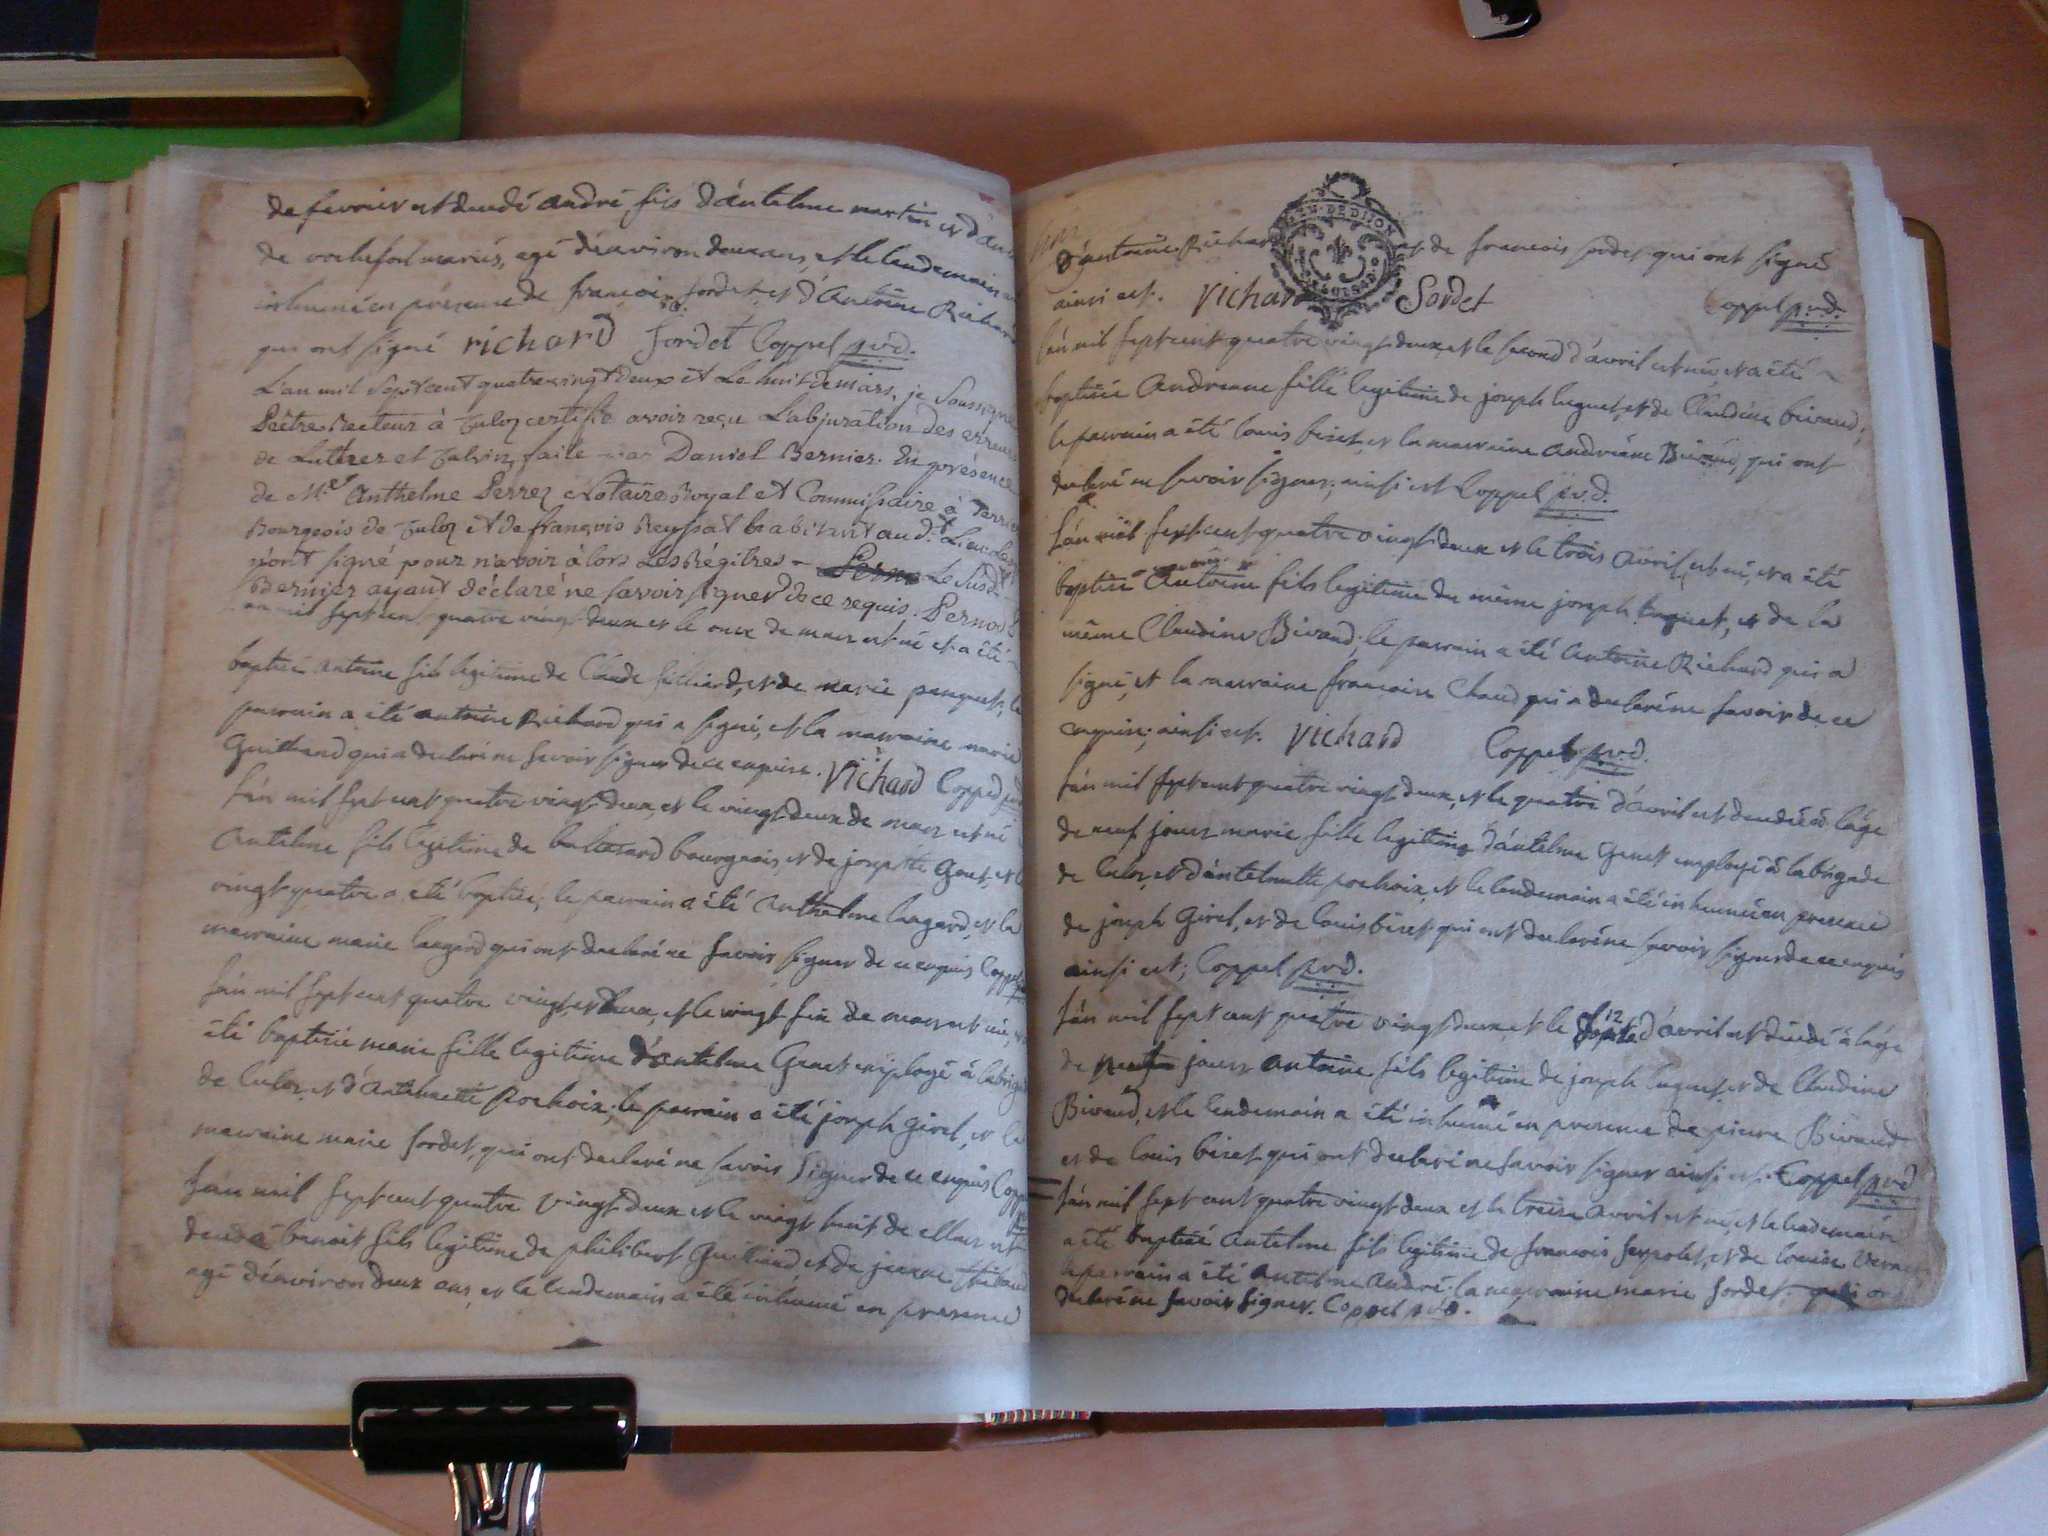 de fevrier est decedé andré fils d'antelme martin et d'anne
de rochefort mariés, agé d'environ deux ans, et le lendemain a
inhumé en presence de françois sordet, et d'Antoine Richard
qui ont signé richard Sordet Coppel p.v.d.
L'an mil sept cent quatre vingt deux et Le huit de mars, je Soussigné
Prêtre Recteur à Culoz certifie avoir reçu L'abjuration des erreurs
de Luther et Calvin, faite par Daniel Bernier. En présence
de Me Anthelme Perrez Notaire Royal et Commissaire à
Bourgeois de Culoz et de françois Reyssat habitant aud. Lieu
n'ont signé pour n'avoir à lors Les Régitres - Le Susd.
Bernier ayant déclaré ne savoir signer de ce requis.
an mil sept cent quatre vingt deux et le onze de mars est né et a été
baptisé antoine fils legitime de Claude filliard, et de marie panguet, le
parrain a été antoine Richard qui a signé, et la marraine marie
Guilland qui a declaré ne savoir signer de ce enquise. richard Coppel
l'an mil sept cent quatre vingt deux, et le vingt deux de mars est né
Antelme fils legitime de baltesard bourgeois, et de josephte Gout, et le
vingt quatre a été baptisé; le parrain a été Anthelme laugard, et la
marraine marie laugard qui ont declaré ne savoir signer de ce enquis Coppel
l'an mil sept cent quatre vingt et deux, et le vingt six de mars est née, et a
été baptisée marie fille legitime d'antelme Genet employé à la brigade
de Culoz, et d'Antelmette Pochoix; le parrain a été joseph Girel, et la
marraine marie sordet, qui ont declaré ne savoir signer de ce enquis Coppel
l'an mil sept cent quatre vingt deux et le vingt huit de Mars est
decedé benoit fils legitime de philibert Guilland et de jeanne
agé d'environ deux ans, et le lendemain a été inhumé en presence
d'antoine Richard et de francois sordet qui ont signé
GEN. DE DIJON
ainsi est. richard Sordet Coppel p.v.d.
l'an mil sept cent quatre vingt deux, et le second d'avril est née et a été
baptisée Andreane fille legitime de joseph luguet, et de Claudine bivaud;
le parrain a été louis biset, et la marraine andreane Bivaud, qui ont
declaré ne savoir signer; ainsi est Coppel p.v.d.
l'an mil sept cent quatre vingt deux et le trois avril, est né, et a été
baptisé Antoine fils legitime du même joseph luguet, et de la
même Claudine Bivaud; le parrain a été Antoine Richard qui a
signé, et la marraine francoise Chaud qui a declaré ne savoir de ce
enquise; ainsi est. richard Coppel p.v.d.
l'an mil sept cent quatre vingt deux, et le quatre d'avril est decedée à l'age
de neuf jours marie fille legitime d'antelme Genet employé à la brigade
de Culoz, et d'antelmette pochoix, et le lendemain a été inhumée en presence
de joseph Girel, et de louis biset qui ont declaré ne savoir signer de ce enquis
ainsi est; Coppel p.v.d.
l'an mil sept cent quatre vingt deux, et le 12 d'avril est décédé à l'age
de jours antoine fils legitime de joseph luguet, et de Claudine
Bivaud, et le lendemain a été inhumé en presence de pierre Bivaud
et de louis biset qui ont declaré ne savoir signer ainsi est. Coppel p.v.d
l'an mil sept cent quatre vingt deux et le treize avril est né, et le lendemain
a été baptisé antelme fils legitime de francois serpolet, et de louise
le parrain a été antelme andré, la marraine marie sordet. qui ont
declaré ne savoir signer. Coppel p.v.d.